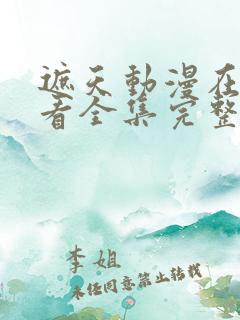 遮天動漫在
看全集完整
李姐
未任同意禁止转载